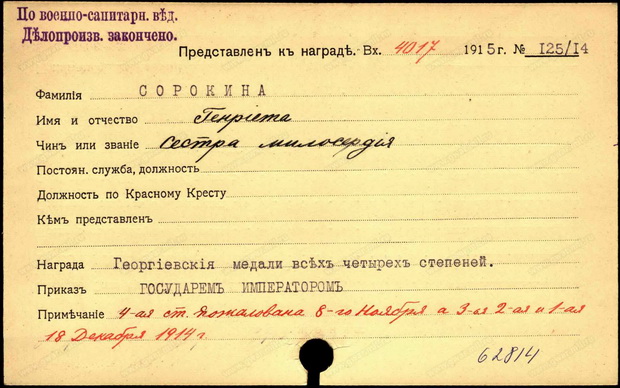 По военно-санитарн. вѣд.
Дѣлопроизв. закончено.
Представленъ къ наградѣ. Вх. 4017 1915 г. № 125/14
Фамилія СОРОКИНА
Имя и отчество Генріета
Чинъ или званіе Сестра милосердія
Постоян. служба, должность
Должность по Красному Кресту
Кѣмъ представленъ
Награда Георгіевскія медали всѣхъ четырехъ степеней.
Приказ ГОСУДАРЕМЪ ИМПЕРАТОРОМЪ
Примѣчаніе 4-ая ст. пожалована 8-го Ноября а 3-ья 2-ая и 1-ая
18 Декабря 1914 г
62814